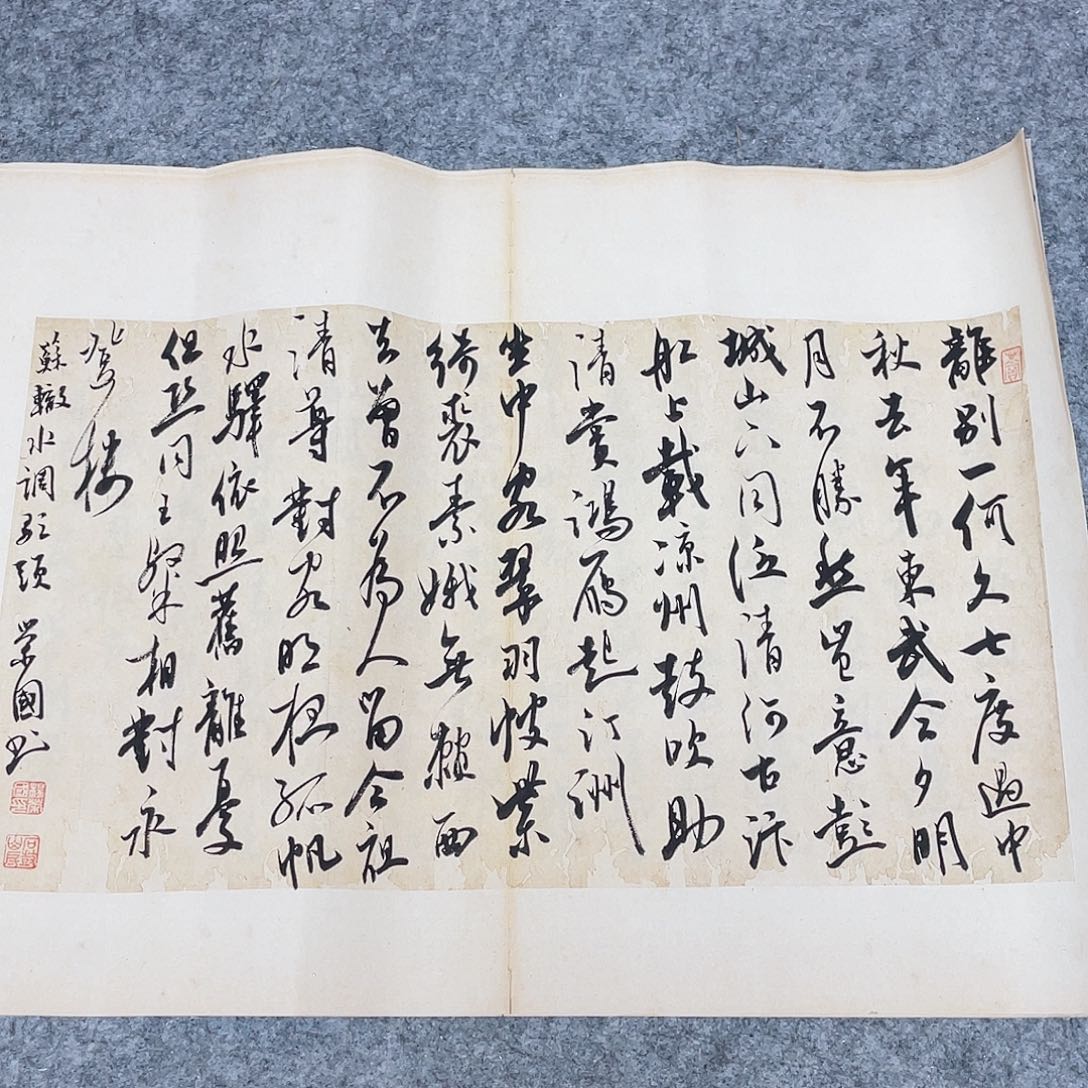 離別一何久七度過中
秋去年東武今夕明
月不勝愁豈意彭
城山下同泛清河古汴
船上載凉州鼓吹助
清賞鴻雁起汀洲
坐中客翠羽帔紫
綺裘素娥無賴西
去曾不為人留今夜
清尊對客明夜孤帆
水驛依照舊離憂
但恐同王粲相對永
登樓
蘇轍水調歌頭 榮國書